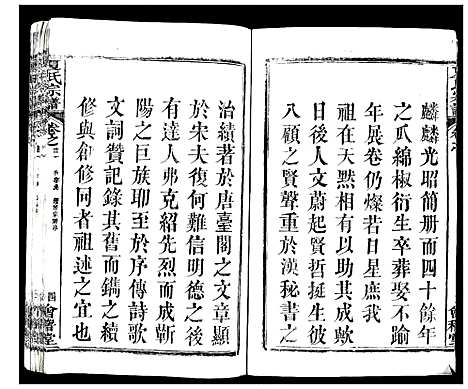 麟麟光昭簡册而四十餘年
之瓜綿椒衍生卒葬娶不踰
年展卷仍燦若日星庶我
祖在天默相有以共成歟
日後人文蔚起賢聲媲美
八顧之賢聲重於漢秘書之
治績著於唐臺閣之文章顯
於宋夫復何難信明德之後
有達人弗克紹先烈而成蘄
陽之巨族耶至於序傳詩歌
文詞贊記錄其舊而鐫之續
修與創修同者祖述之宜也
氏宗譜
卷之
四
會稽堂